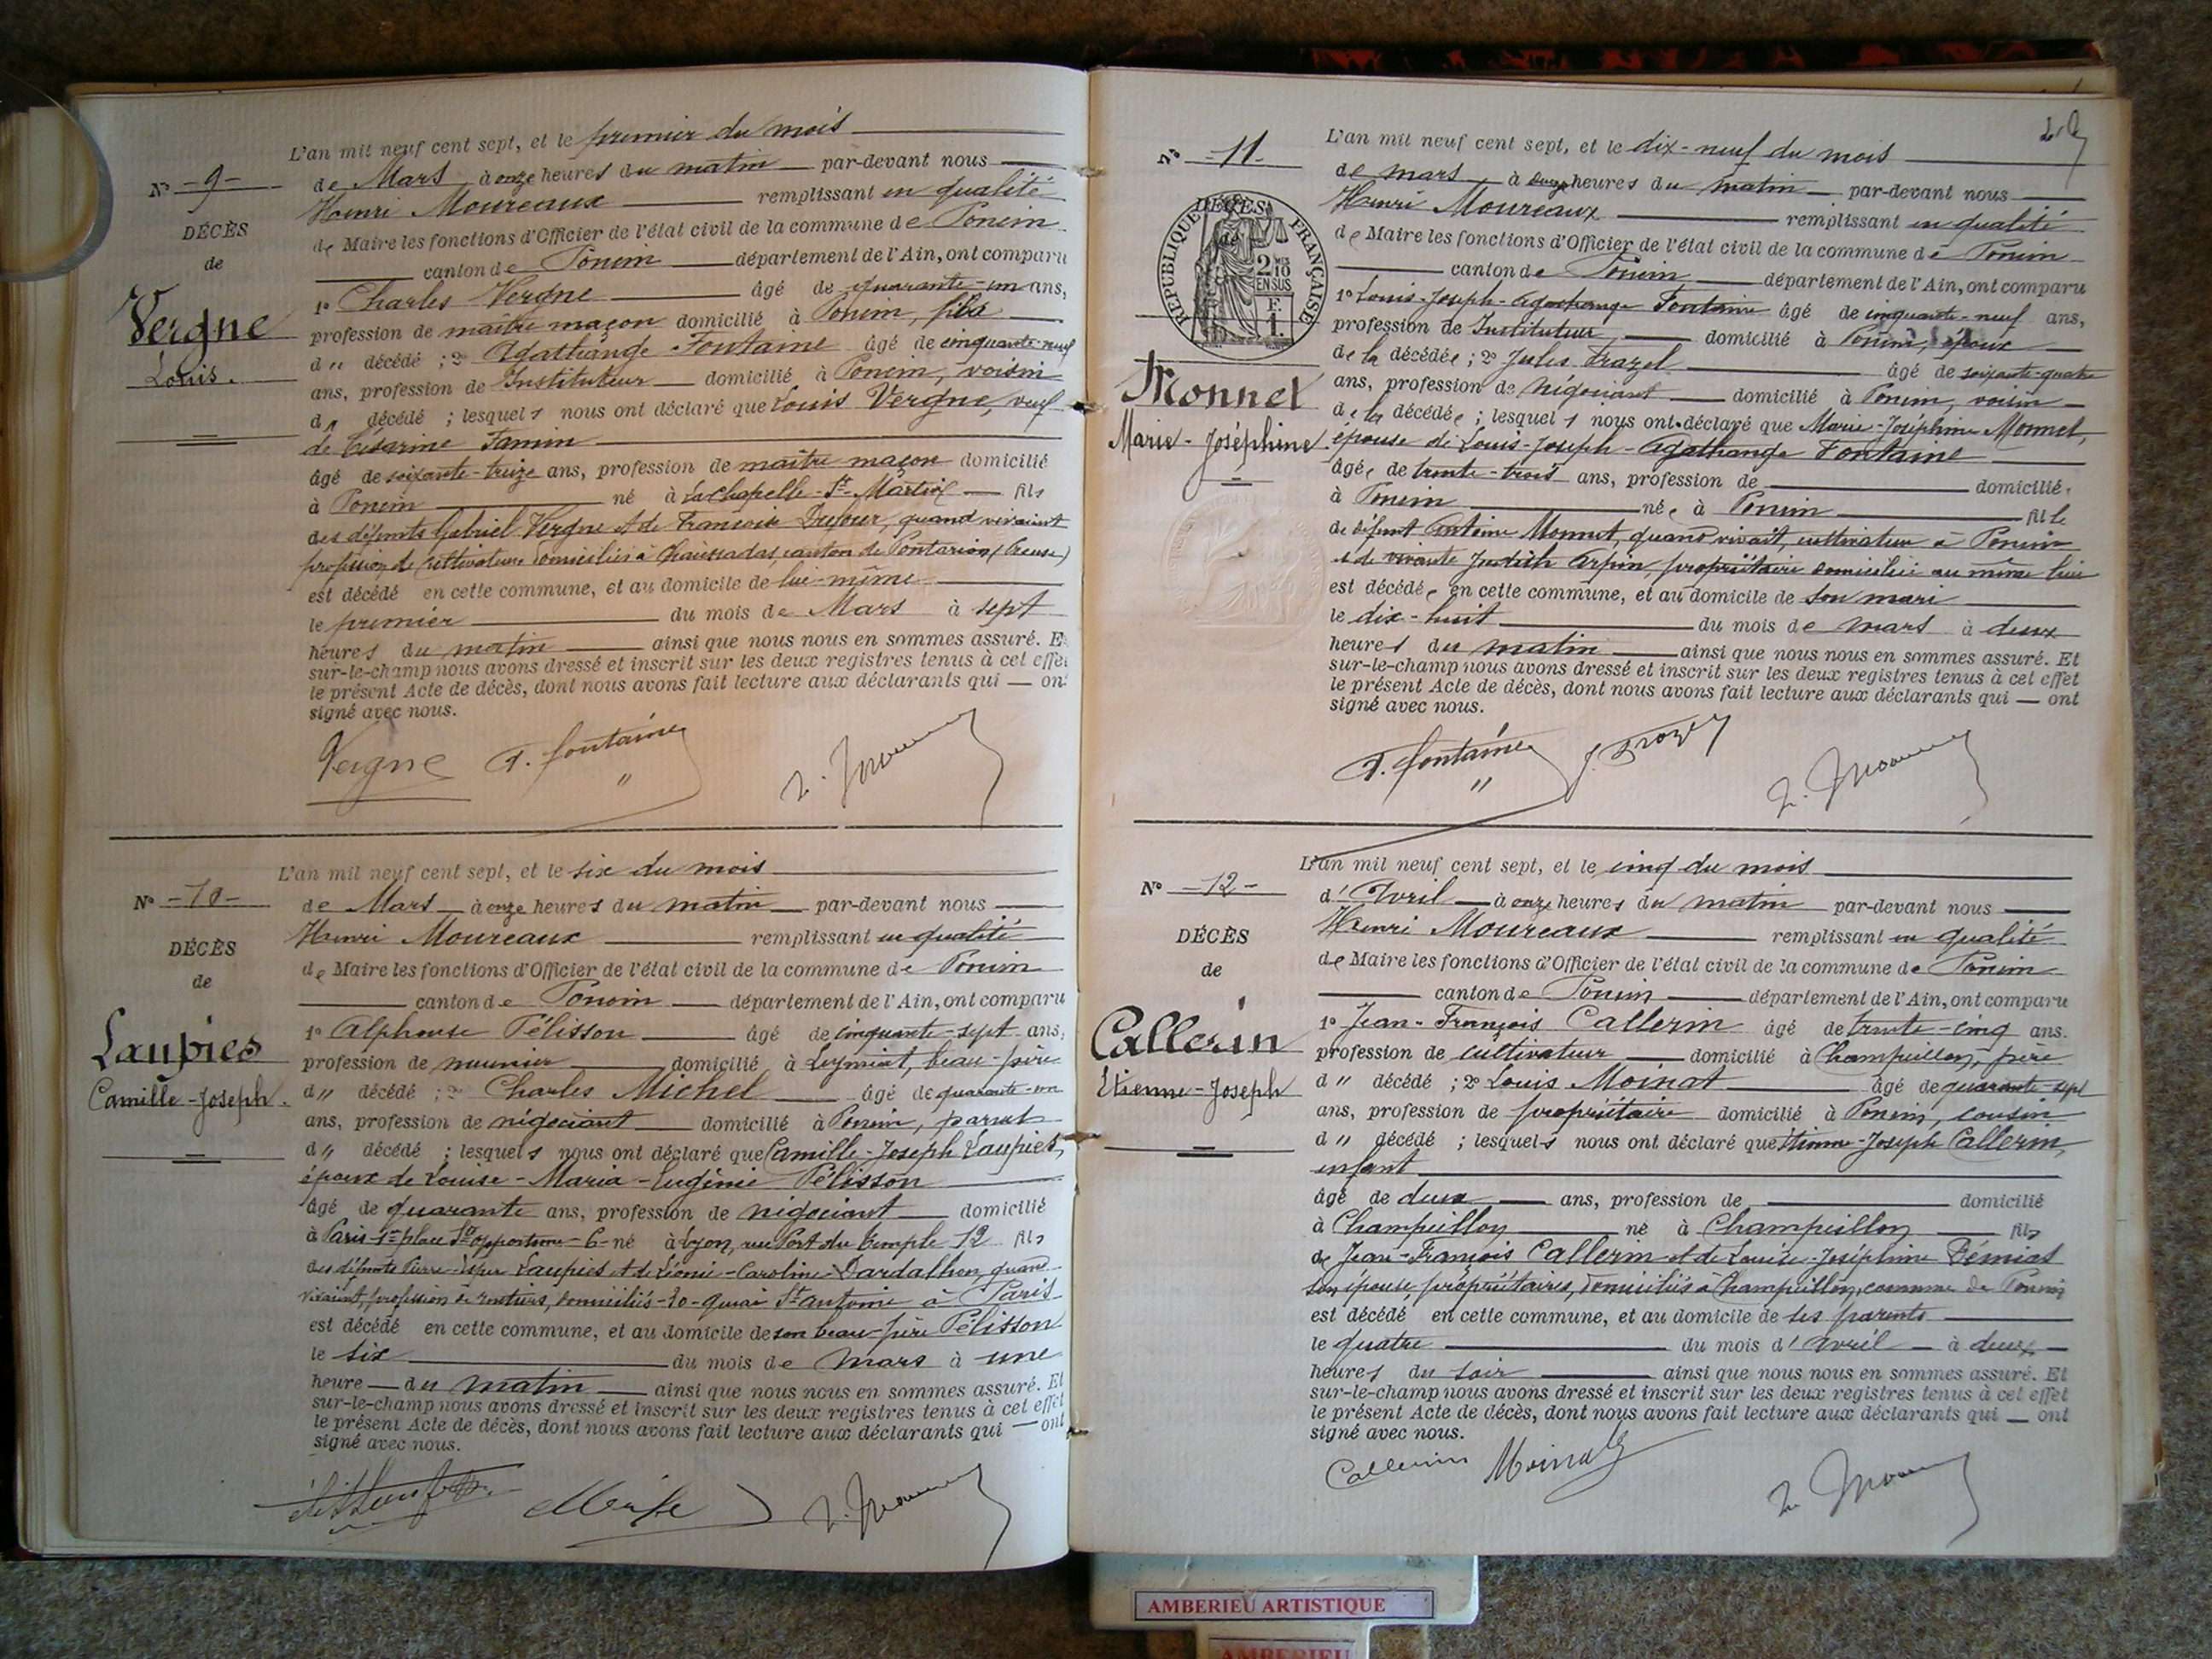 L'an mil neuf cent sept, et le premier du mois
N° -9-
de Mars à onze heures du matin par-devant nous
Henri Moureaux remplissant en qualité
DÉCÈS
de Maire les fonctions d'Officier de l'état civil de la commune de Poncin
de
canton de Poncin département de l'Ain, ont comparu
1° Charles Vergne âgé de quarante-un ans,
Vergne
profession de maître maçon domicilié à Poncin, fils
Louis.
d" décédé ; 2° Agathange Fontaine âgé de cinquante-neuf
ans, profession de Instituteur domicilié à Poncin, voisin
du décédé ; lesquels nous ont déclaré que Louis Vergne, veuf
de Césarine Jamin
âgé de soixante-treize ans, profession de maître maçon domicilié
à Poncin né à La Chapelle-St-Martial fils
des défunts Gabriel Vergne et de Françoise Dufour, quand vivaient
profession de cultivateurs domiciliés à Chaussadas, canton de Pontarion (Creuse)
est décédé en cette commune, et au domicile de lui-même
le premier du mois de Mars à sept
heures du matin ainsi que nous nous en sommes assuré. E
sur-le-champ nous avons dressé et inscrit sur les deux registres tenus à cet effet
le présent Acte de décès, dont nous avons fait lecture aux déclarants qui ont
signé avec nous.
Vergne A. fontaine
L'an mil neuf cent sept, et le six du mois
N° -10-
de Mars à onze heures du matin par-devant nous
Henri Moureaux remplissant en qualité
DÉCÈS
de Maire les fonctions d'Officier de l'état civil de la commune de Poncin
de
canton de Poncin département de l'Ain, ont comparu
1° Alphonse Pélisson âgé de cinquante-sept ans,
Laupies
profession de meunier domicilié à Leyment, beau-père
Camille-Joseph.
d" décédé ; 2° Charles Michel âgé de quarante-un
ans, profession de négociant domicilié à Poncin, parent
d" décédé ; lesquels nous ont déclaré que Camille-Joseph Laupies,
époux de Louise-Maria-Eugénie Pélisson
âgé de quarante ans, profession de négociant domicilié
à Paris place Ste Opportune-6- né à Lyon, rue Port du Temple 12 fils
des défunts Pierre Laupies et de Léonie-Caroline Dardalhon, quand
vivaient, profession de rentiers, domiciliés-20-quai St Antoine à Paris
est décédé en cette commune, et au domicile de son beau-père Pélisson
le six du mois de mars à une
heure du matin ainsi que nous nous en sommes assuré. Et
sur-le-champ nous avons dressé et inscrit sur les deux registres tenus à cet effet
le présent Acte de décès, dont nous avons fait lecture aux déclarants qui ont
signé avec nous.
L'an mil neuf cent sept, et le dix-neuf du mois
N° -11-
de mars à onze heures du matin par-devant nous
Henri Moureaux remplissant en qualité
DÉCÈS
de
RÉPUBLIQUE FRANÇAISE
2 MES
10
EN SUS
F.
1.
de Maire les fonctions d'Officier de l'état civil de la commune de Poncin
canton de Poncin département de l'Ain, ont comparu
1° Louis-Joseph-Agathange Fontaine âgé de cinquante-neuf ans,
profession de Instituteur, domicilié à Poncin, époux
de la décédée ; 2° Jules Trazel âgé de soixante-quatre
Monnet
ans, profession de négociant domicilié à Poncin, voisin
de la décédée ; lesquels nous ont déclaré que Marie-Joséphine Monnet,
Marie-Joséphine.
épouse de Louis-Joseph-Agathange Fontaine
âgée de trente-trois ans, profession de domicilié
à Poncin née à Poncin fille
de défunt Antoine Monnet, quand vivait, cultivateur à Poncin
et de vivante Judith Arpin, propriétaire domiciliée au même lieu
est décédée en cette commune, et au domicile de son mari
le dix-huit du mois de mars à deux
heures du matin ainsi que nous nous en sommes assuré. Et
sur-le-champ nous avons dressé et inscrit sur les deux registres tenus à cet effet
le présent Acte de décès, dont nous avons fait lecture aux déclarants qui ont
signé avec nous.
A. fontaine
L'an mil neuf cent sept, et le cinq du mois
N° -12-
d'Avril à onze heures du matin par-devant nous
Henri Moureaux remplissant en qualité
DÉCÈS
de Maire les fonctions d'Officier de l'état civil de la commune de Poncin
de
canton de Poncin département de l'Ain, ont comparu
1° Jean-François Callerin âgé de trente-cinq ans.
Callerin
profession de cultivateur domicilié à Champeillon, père
Etienne-Joseph
d" décédé ; 2° Louis Moinat âgé de quarante-sept
ans, profession de propriétaire domicilié à Poncin, cousin
d" décédé ; lesquels nous ont déclaré que Etienne-Joseph Callerin,
enfant
âgé de deux ans, profession de domicilié
à Champeillon né à Champeillon fils
de Jean-François Callerin et de Louise-Joséphine Pémiat
son épouse, propriétaires, domiciliés à Champeillon, commune de Poncin
est décédé en cette commune, et au domicile de ses parents
le quatre du mois d'Avril à deux
heures du soir ainsi que nous nous en sommes assuré. Et
sur-le-champ nous avons dressé et inscrit sur les deux registres tenus à cet effet
le présent Acte de décès, dont nous avons fait lecture aux déclarants qui ont
signé avec nous.
Callerin Moinat
AMBERIEU ARTISTIQUE
AMBERIEU